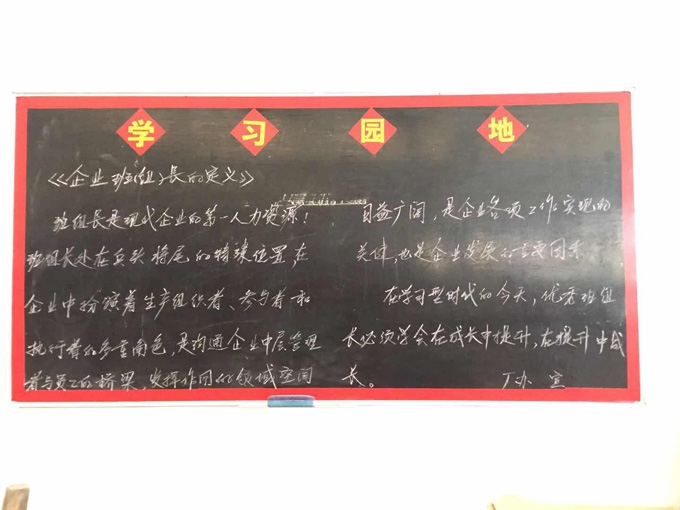 学习园地
《企业班(组)长的定义》
班组长是现代企业的第一人力资源！
班组长处在兵头将尾的特殊位置在
企业中扮演着生产组织者、参与者和
执行者的多重角色，是沟通企业中层管理
者与员工的桥梁，发挥作用的领域空间
日益广阔，是企业各项工作实现的
关键，也是企业发展的主要因素
在学习型时代的今天，优秀班组
长必须学会在成长中提升，在提升中成
长。
厂办 宣